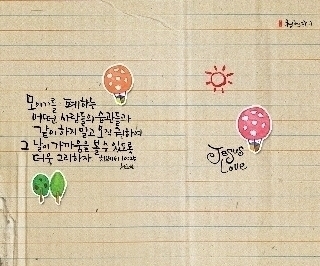 모이기를 폐하는
어떤 사람들의 습관들과
같이 하지 말고 오직 권하여
그 날이 가까움을 볼 수 있도록
더욱 그리하자
Jesus
Love